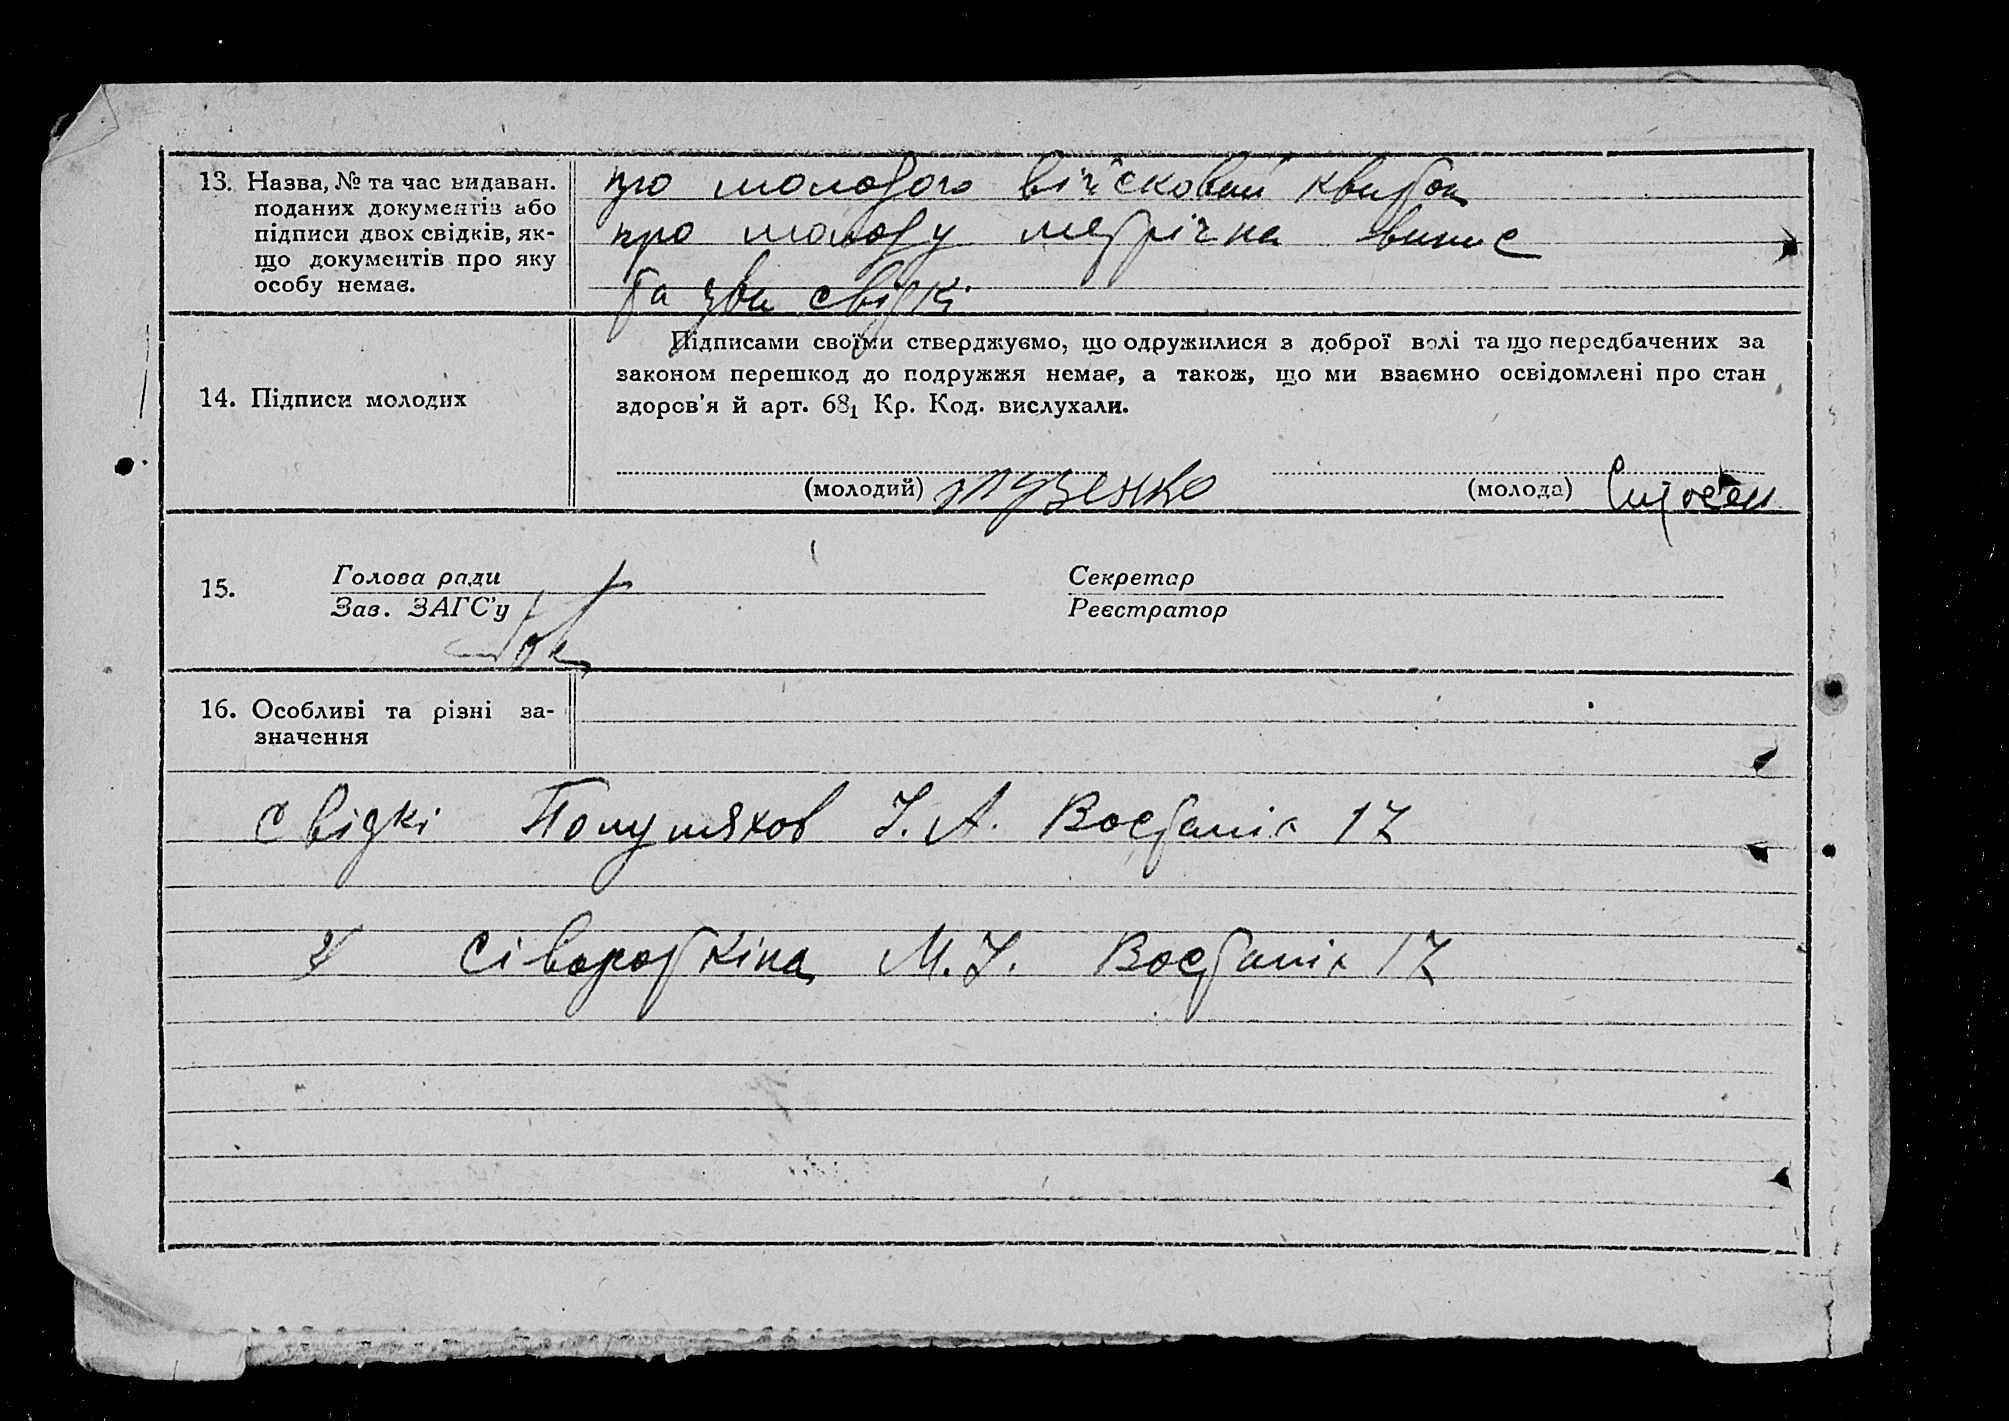 13. Назва, № та час видаван.
поданих документів або
підписи двох свідків, як-
що документів про яку
особу немає.
про молодого військовий квиток
про молоду метрічна випис
та два свідкі
14. Підписи молодих
Підписами своїми стверджуємо, що одружилися з доброї волі та що передбачених за
законом перешкод до подружжя немає, а також, що ми взаємно освідомлені про стан
здоров'я й арт. 68₁ Кр. Код. вислухали.
(молодий)
(молода)
15.
Голова ради
Зав. ЗАГС'у
Секретар
Реєстратор
16. Особливі та різні за-
значення
свідкі Полумяхов І. А. 17
Сівороткіна М. І. 17